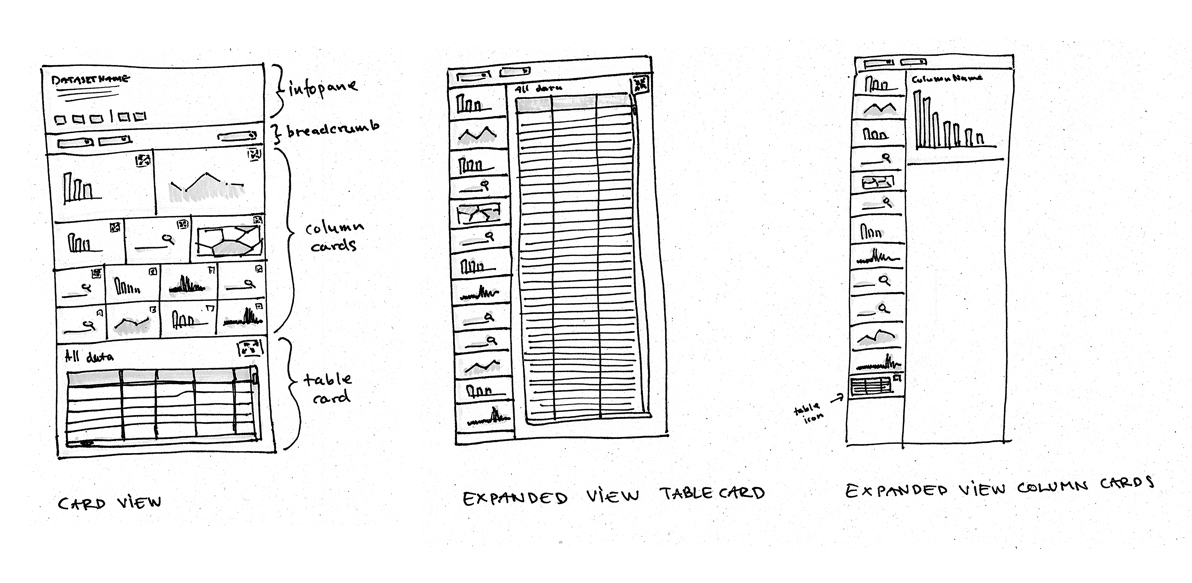 DATASETNAME
infopane
breadcrumb
column
cards
All data
table
card
CARD VIEW
All data
EXPANDED VIEW TABLECARD
ColumnName
table
icon
EXPANDED VIEW COLUMN CARDS